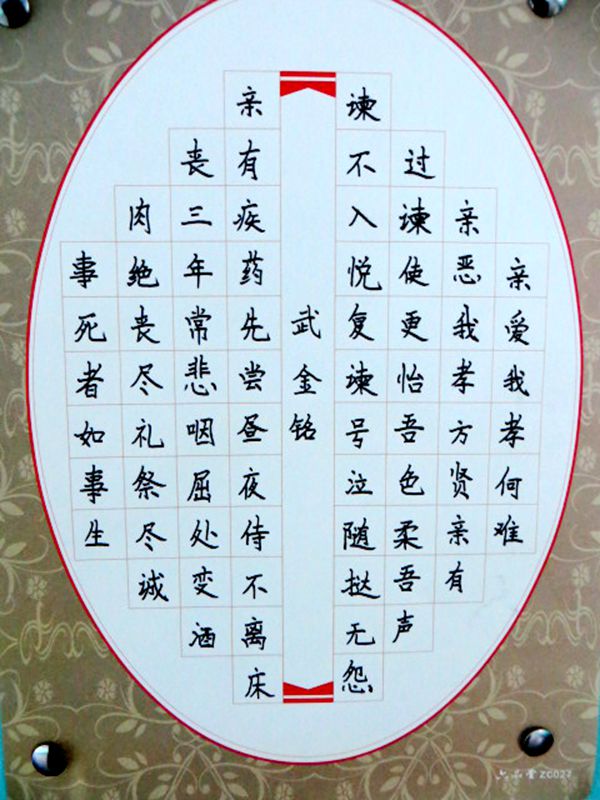 亲爱我孝何难
亲恶我孝方贤亲有
过谏使更怡吾色柔吾声
谏不入悦复谏号泣随挞无怨
武金铭
亲有疾药先尝昼夜侍不离床
丧三年常悲咽居处变酒
肉绝丧尽礼祭尽诚
事死者如事生
六品堂 ZC027